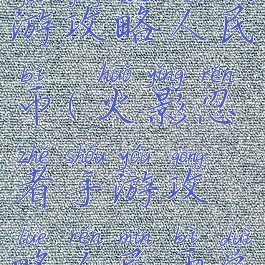 游攻略人民
bì huǒ yǐng rěn
币(火影忍
zhě shǒu yóu gōng
者手游攻
lüè rén mín bì duì